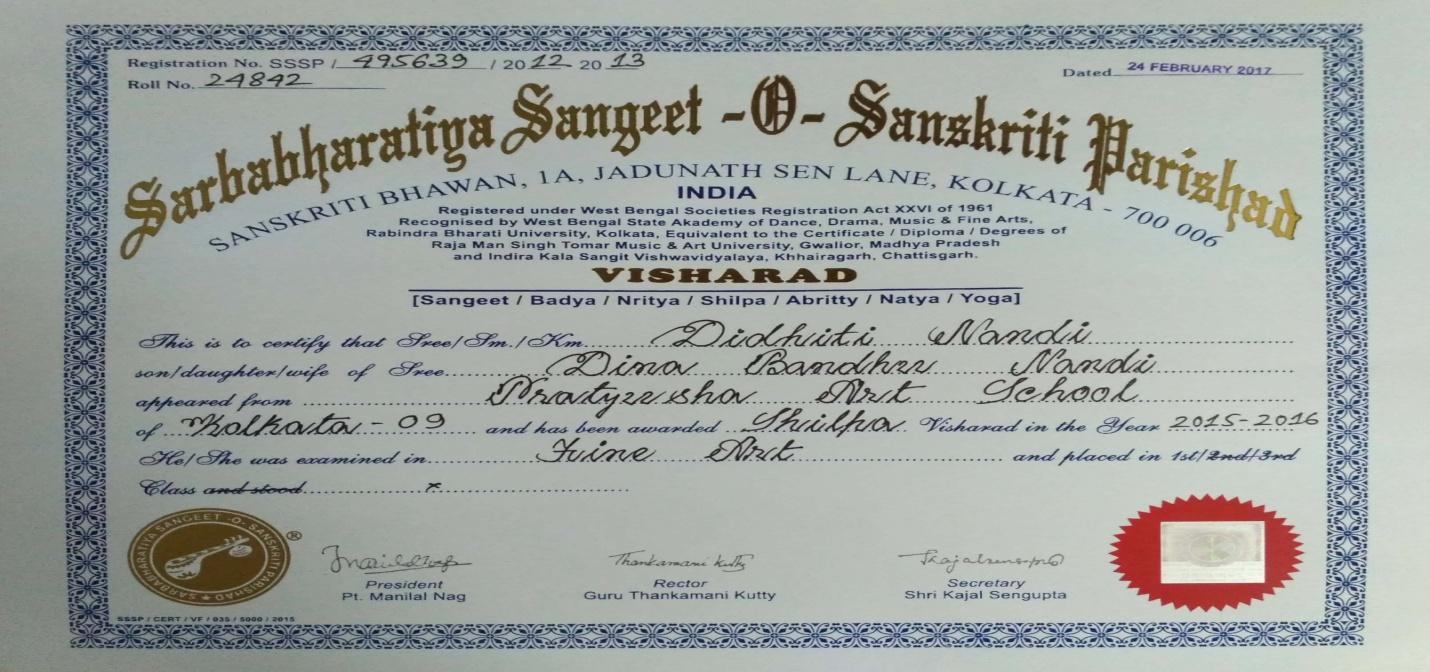 Registration No. SSSP / 495639 / 2012 2013
Roll No. 24842
Dated 24 FEBRUARY 2017
Sarbabharatiya Sangeet -O- Sanskriti Parishad
SANSKRITI BHAWAN, 1A, JADUNATH SEN LANE, KOLKATA - 700 006
INDIA
Registered under West Bengal Societies Registration Act XXVI of 1961
Recognised by West Bengal State Akademy of Dance, Drama, Music & Fine Arts,
Rabindra Bharati University, Kolkata, Equivalent to the Certificate / Diploma / Degrees of
Raja Man Singh Tomar Music & Art University, Gwalior, Madhya Pradesh
and Indira Kala Sangit Vishwavidyalaya, Khhairagarh, Chattisgarh.
VISHARAD
[Sangeet / Badya / Nritya / Shilpa / Abritty / Natya / Yoga]
This is to certify that Sree/Sm./Km. Didhiti Nandi
son/daughter/wife of Sree Dina Bandhu Nandi
appeared from Pratyusha Art School
of Kolkata - 09 and has been awarded Shilpa Visharad in the Year 2015-2016
He/She was examined in Fine Art and placed in 1st/2nd/3rd
Class and stood x
SARBABHARATIYA SANGEET -O- SANSKRITI PARISHAD
®
Thankamani Kutty
President
Pt. Manilal Nag
Rector
Guru Thankamani Kutty
Secretary
Shri Kajal Sengupta
SSSP / CERT / VF / 035 / 5000 / 2015